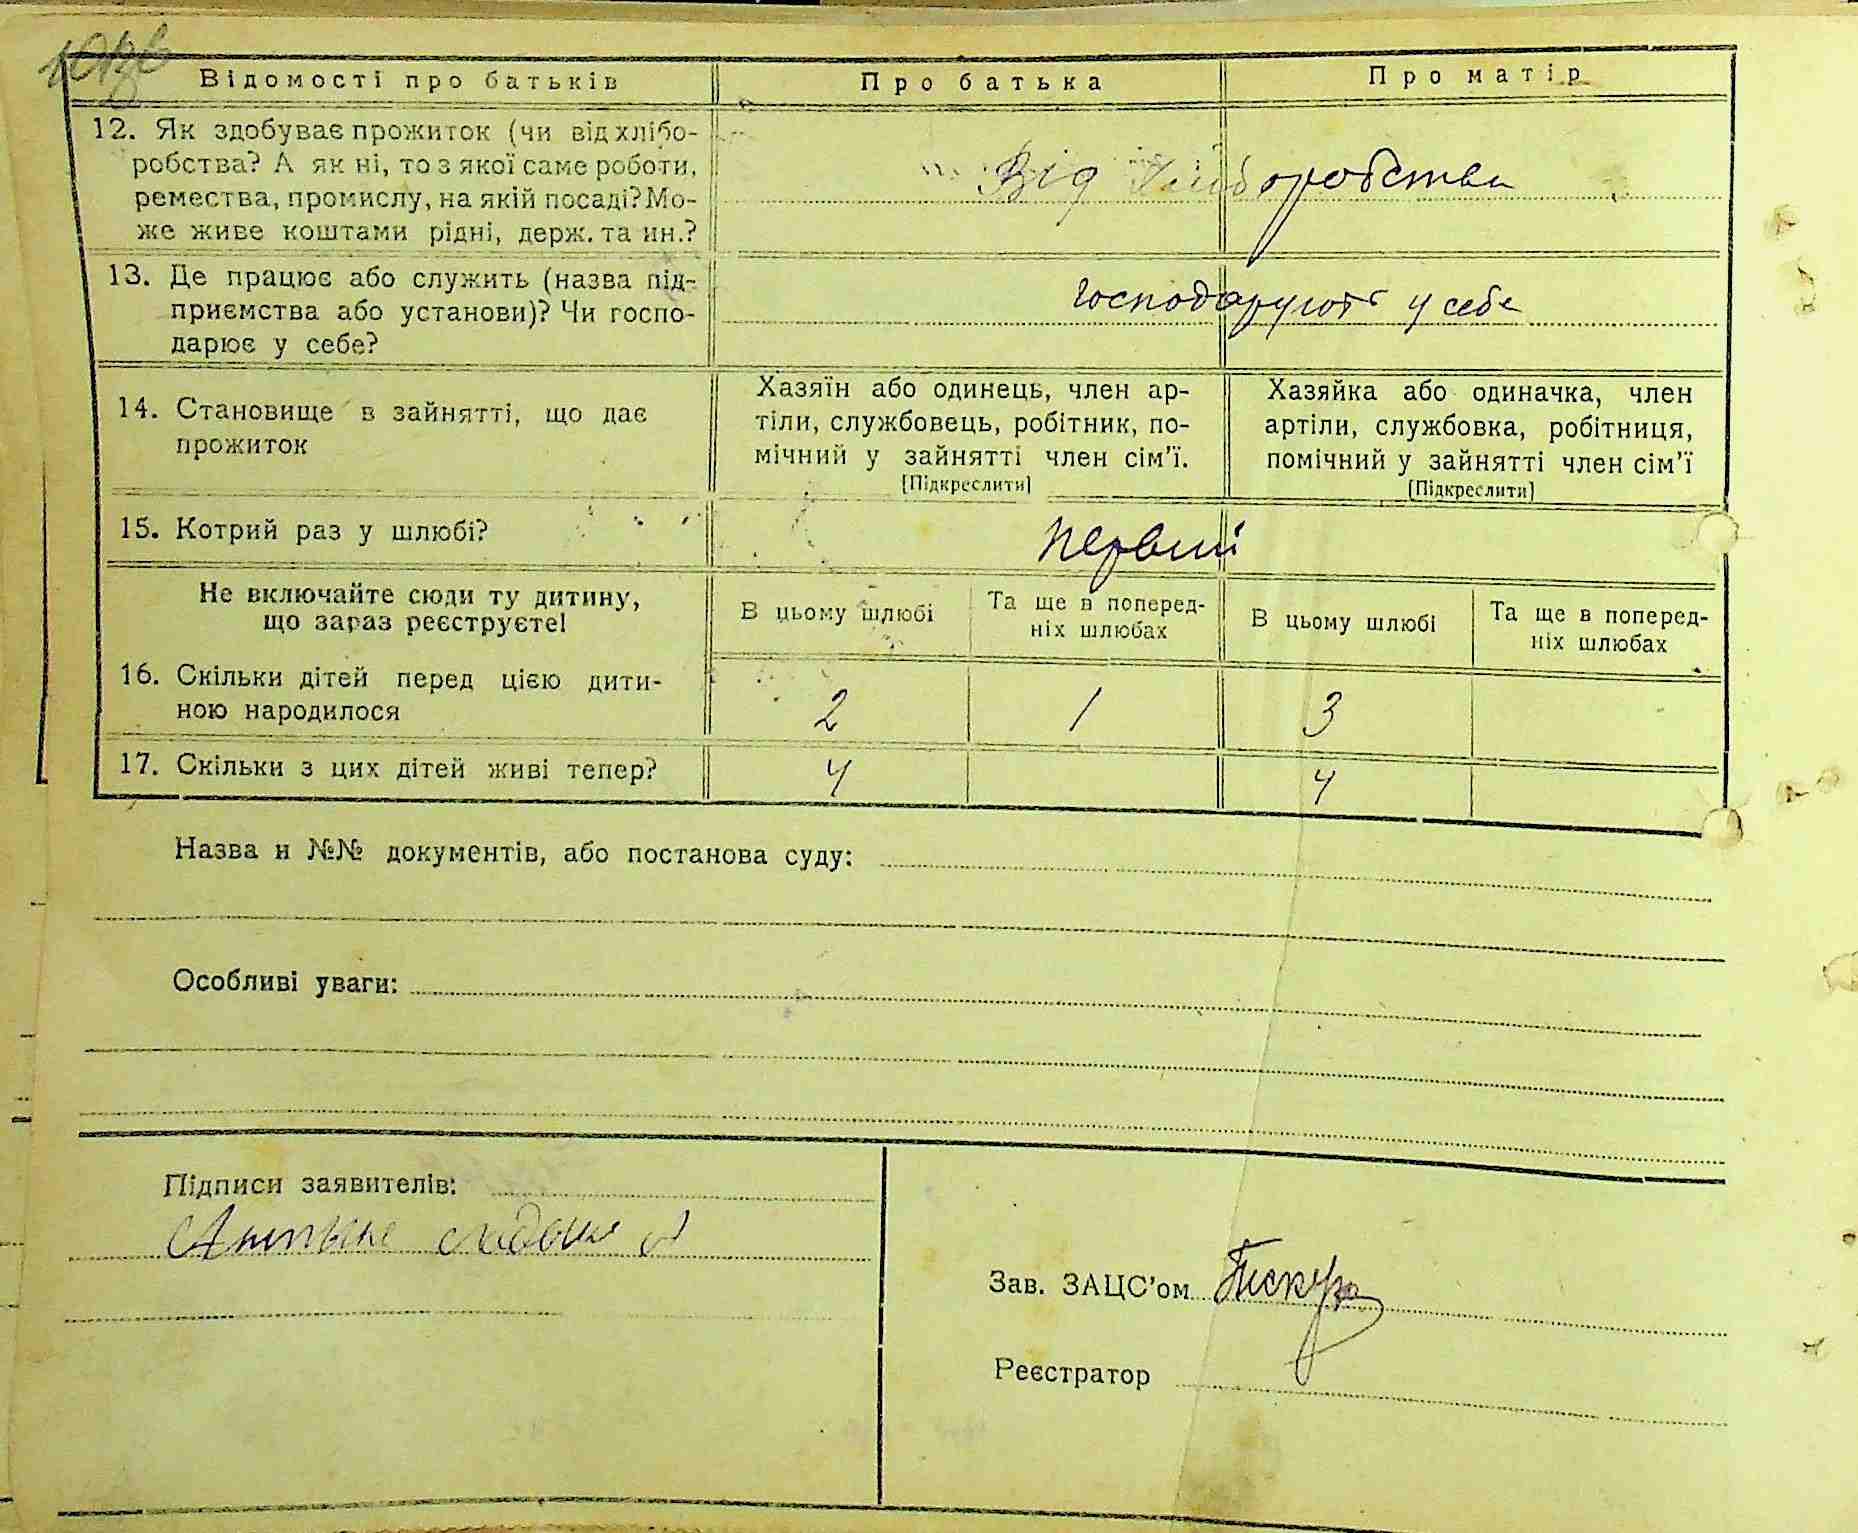 Відомості про батьків
Про батька
Про матір
12. Як здобуває прожиток (чи від хлібо-
робства? А як ні, то з якої саме роботи,
ремества, промислу, на якій посаді? Мо-
же живе коштами рідні, держ. та ин.?
Від хліборобства
13. Де працює або служить (назва під-
приємства або установи)? Чи госпо-
дарює у себе?
господарують у себе
14. Становище в зайнятті, що дає
прожиток
Хазяїн або одинець, член ар-
тіли, службовець, робітник, по-
мічний у зайнятті член сім’ї.
[Підкреслити]
Хазяйка або одиначка, член
артіли, службовка, робітниця,
помічний у зайнятті член сім’ї
[Підкреслити]
15. Котрий раз у шлюбі?
Первий
Не включайте сюди ту дитину,
що зараз реєструєте!
В цьому шлюбі
Та ще в поперед-
ніх шлюбах
В цьому шлюбі
Та ще в поперед-
ніх шлюбах
16. Скільки дітей перед цією дити-
ною народилося
2
1
3
17. Скільки з цих дітей живі тепер?
4
4
Назва и №№ документів, або постанова суду:
Особливі уваги:
Підписи заявителів:
Зав. ЗАЦС’ом
Реєстратор